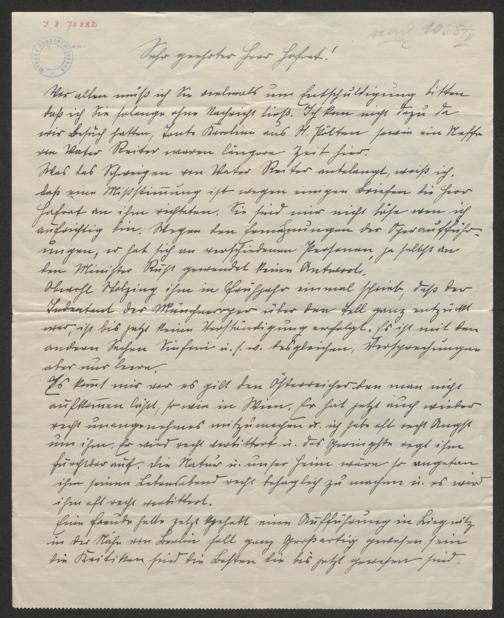 J. N. 78882
Sehr geehrter Herr Hofrat!
Vor allem muß ich Sie vielmals um Entschuldigung bitten
daß ich Sie solange ohne Nachricht ließ. Ich kam nicht dazu da
wir Besuch hatten, Tante Karoline aus St. Pölten sowie ein Neffe
von Vater Reiter waren längere Zeit hier.
Was das Schweigen von Vater Reiter anbelangt, weiß ich,
daß eine Mißstimmung ist wegen einigen Briefen die Herr
Hofrat an ihm richteten. Sie sind mir nicht böse wenn ich
aufrichtig bin. Wegen den Opernaufführ-
ungen, er hat sich an verschiedenen Personen, ja selbst an
den Minister Rüst gewendet keine Antwort.
Obwohl Stolzing ihm im Frühjahr einmal schrieb, daß der
Intendant der Münchneroper über den Tell ganz entzückt
war, ist bis jetzt keine Verständigung erfolgt. Es ist mit den
anderen Sachen Sinfonie u. s. w. desgleichen, Versprechungen
aber nur leere.
Es kommt mir vor es gilt den Österreicher den man nicht
aufkommen läßt, so wie in Wien. Er hat jetzt auch wieder
recht unangenehmes mitzumachen u. ich habe oft recht Angst
um ihm. Er wird recht verbittert u. das Geringste regt ihm
furchtbar auf. Die Natur u. unser Heim wäre so angetan
ihm seinen Lebensabend recht behaglich zu machen u. es wird
ihm oft recht verbittert.
Eine Freude hatte jetzt gehabt eine Aufführung in Liegnitz
in der Nähe von Berlin soll ganz Großartig gewesen sein
die Kritiken sind die Besten die bis jetzt gewesen sind.